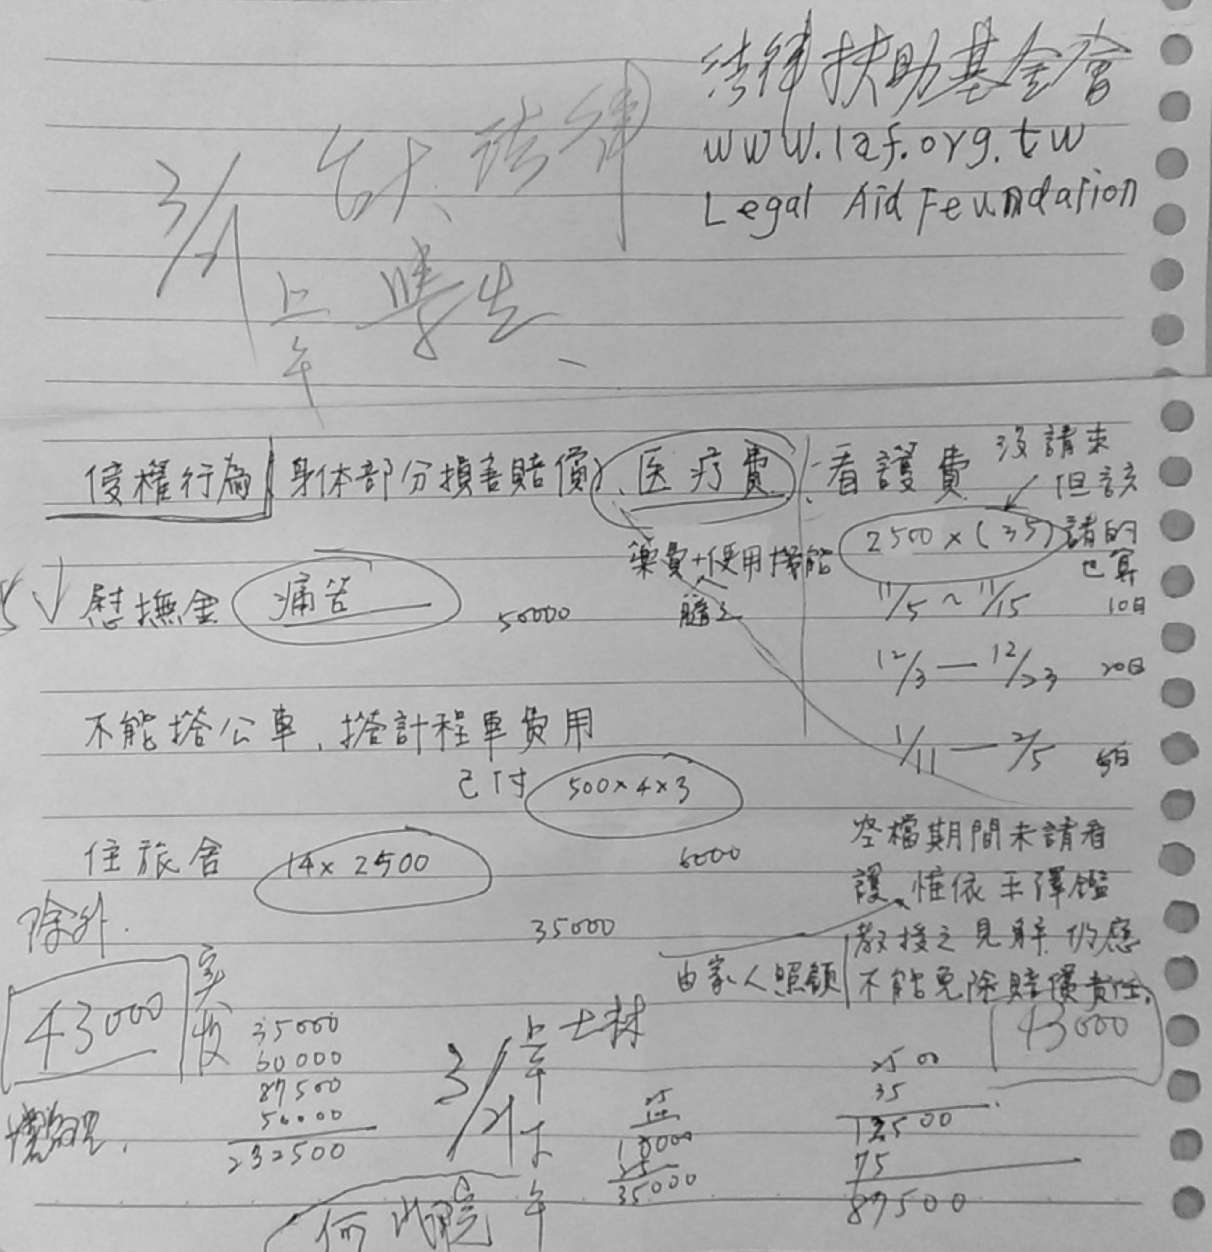 法律扶助基金會
www.laf.org.tw
Legal Aid Feundation
3/21 上午
台大 法律
學生
侵權行為 身体部分損害賠償、医疗費、看護費
沒請來
但該
請的
也算
2500×(35)
藥費+使用
慰撫金 痛苦
50000
11/5～11/15 10日
12/3—12/23 20日
不能搭公車、搭計程車費用
1/11—2/5 5日
已付 500×4×3
6000
住旅舍 14×2500
35000
除外.
空檔期間未請看
護、惟依王澤鑑
教授之見解仍應
不能免除賠償責任。
由家人照顧
43000
43000
實收
35000
60000
87500
50000
232500
3/21
上午 士林
下午
10000
25
35000
2500
35
12500
75
87500